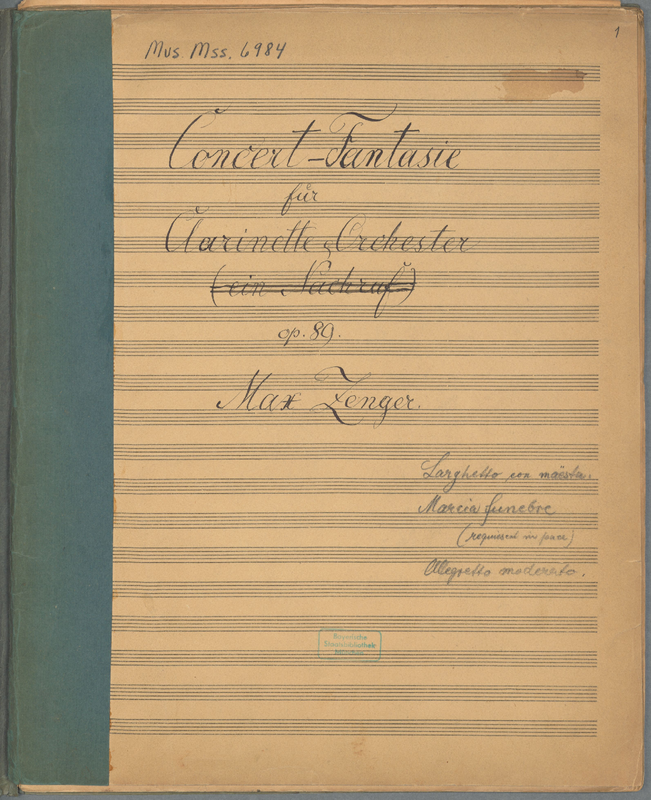 1
Mus Mss. 6984
Concert-Fantasie
für
Clarinette & Orchester
(ein Nachruf)
op. 89.
Max Zenger.
Larghetto con maësta.
Marcia funebre
(requiescat in pace)
Allegretto moderato.
Bayerische
Staatsbibliothek
München